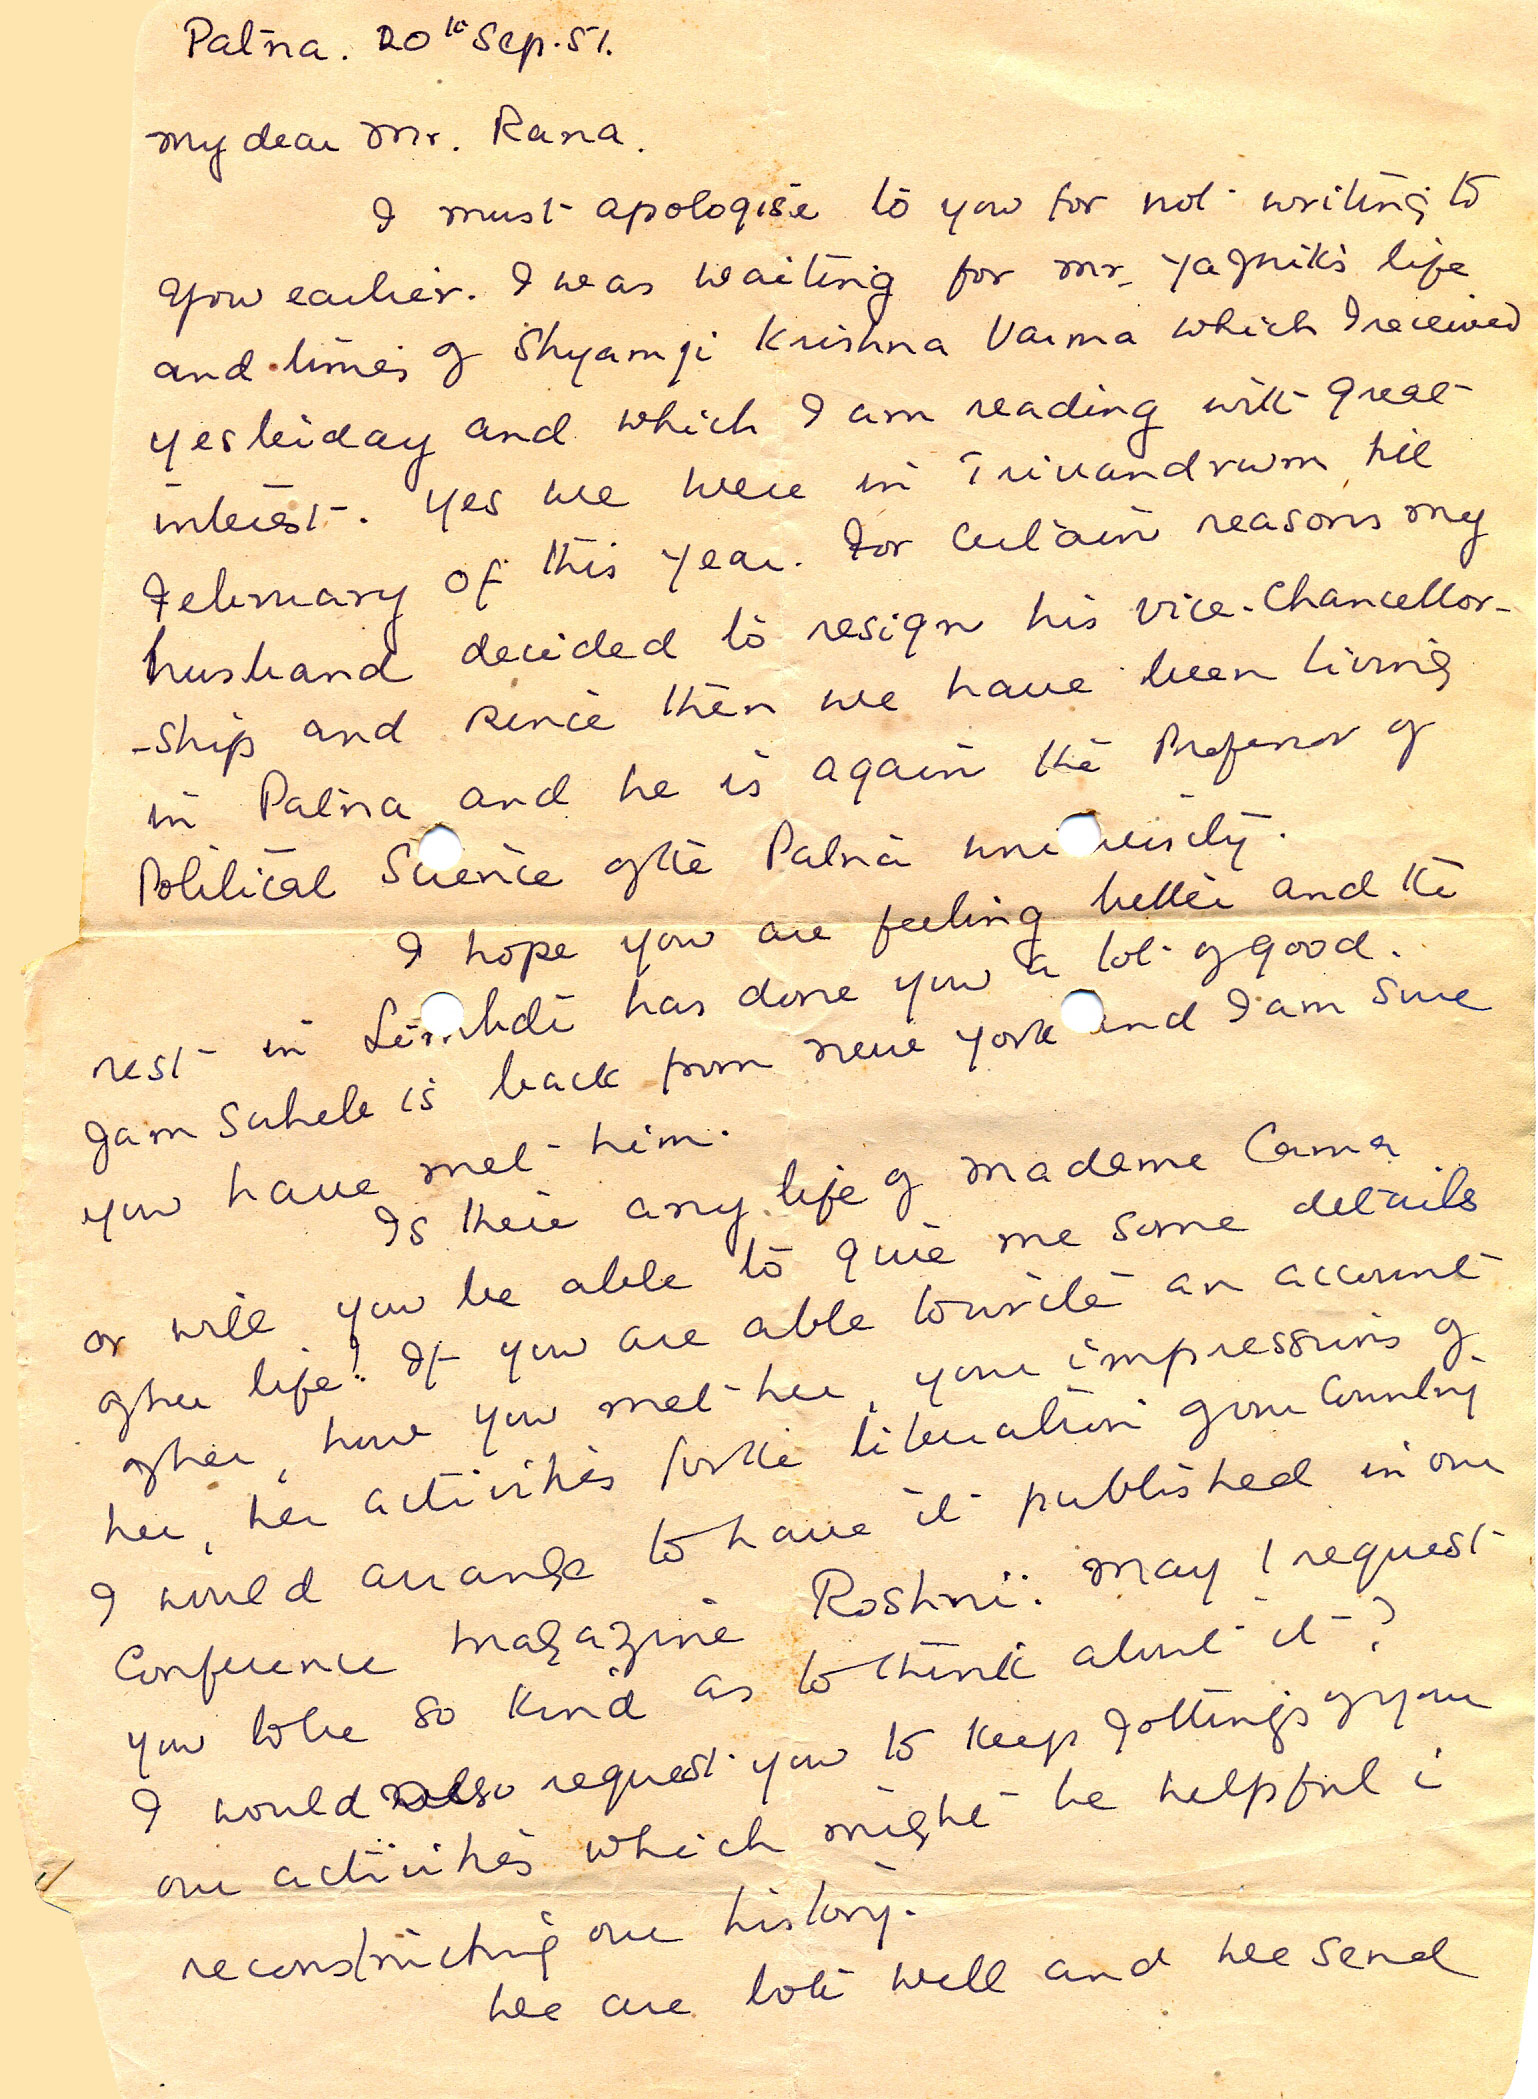 Patna. 20th Sep. 51.
My dear Mr. Rana.
I must apologise to you for not writing to
you earlier. I was waiting for Mr. Yajnik's life
and times of Shyamji Krishna Varma which I received
yesterday and which I am reading with great
interest. Yes we were in Trivandrum till
February of this year. For certain reasons my
husband decided to resign his Vice-Chancellor-
-ship and since then we have been living
in Patna and he is again the Professor of
Political Science of the Patna University.
I hope you are feeling better and the
rest in Limbdi has done you a lot of good.
Jam Saheb is back from New York and I am sure
you have met him.
Is there any life of Madame Cama
or will you be able to give me some details
of her life? If you are able to write an account
of her, how you met her, your impressions of
her, her activities for the liberation of our country
I would arrange to have it published in our
Conference magazine Roshni. May I request
you to be so kind as to think about it?
I would also request you to keep jottings of your
our activities which might be helpful i
reconstructing our history.
We are both well and we send